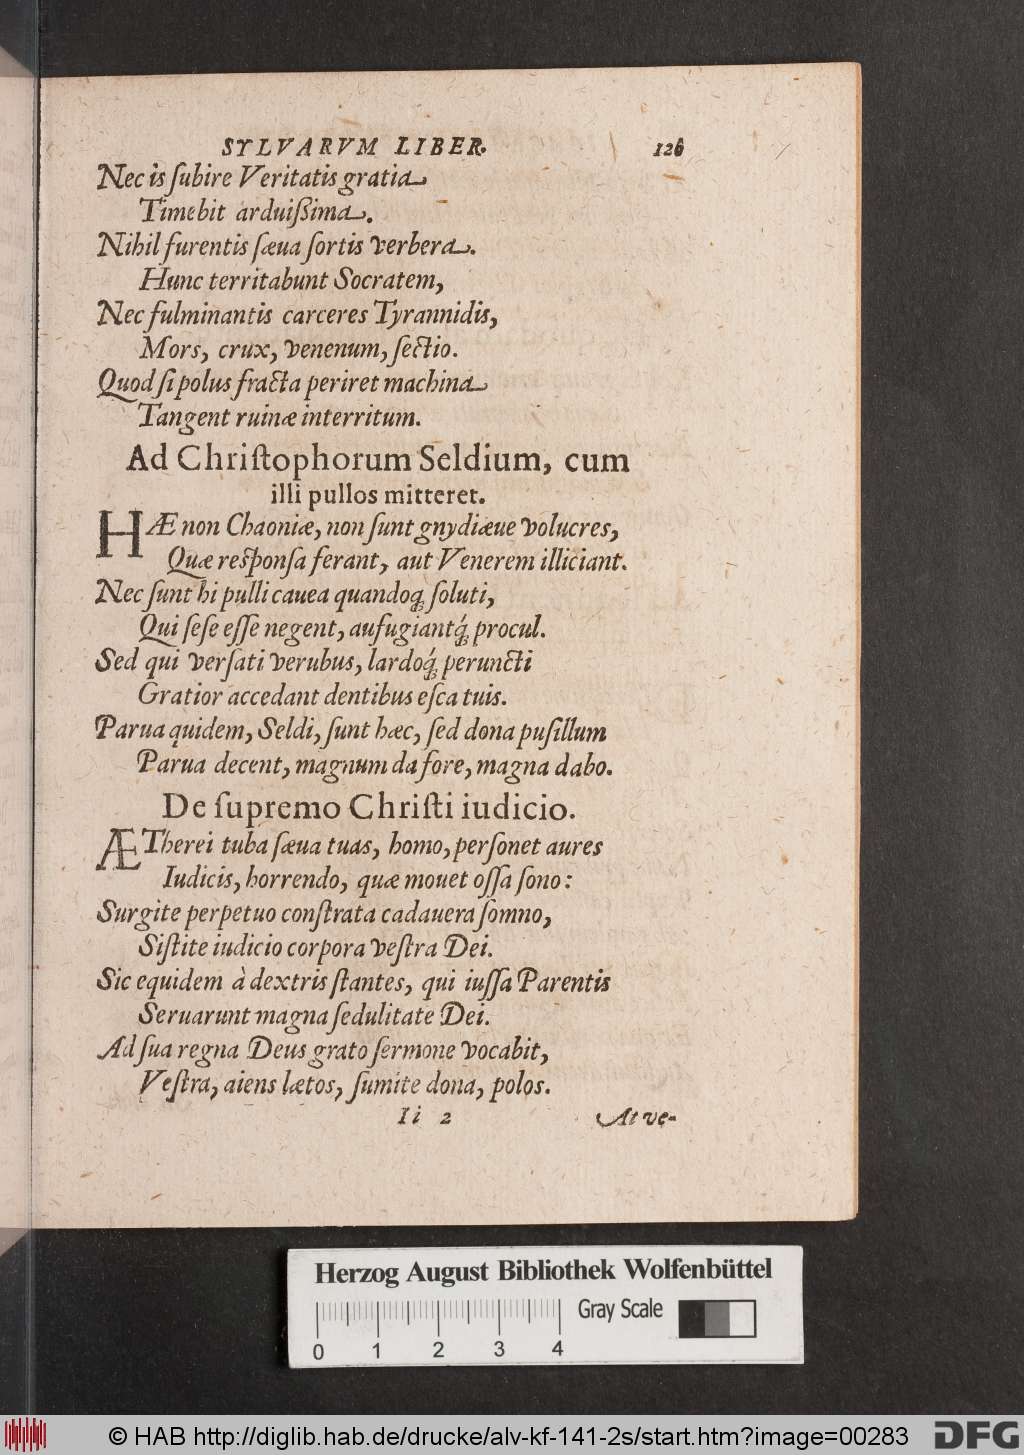 SYLVARVM LIBER. 126
Nec is ſubire Veritatis gratia
Timebit arduiſsima.
Nihil furentis ſæua ſortis verbera.
Hunc territabunt Socratem,
Nec fulminantis carceres Tyrannidis,
Mors, crux, venenum, ſectio.
Quod ſi polus fracta periret machina
Tangent ruinæ interritum.
Ad Chriſtophorum Seldium, cum
illi pullos mitteret.
HÆ non Chaoniæ, non ſunt gnydiæue volucres,
Quæ reſponſa ferant, aut Venerem illiciant.
Nec ſunt hi pulli cauea quandoq́ ſoluti,
Qui ſeſe eſſe negent, aufugiantq́ procul.
Sed qui verſati verubus, lardoq́ peruncti
Gratior accedant dentibus eſca tuis.
Parua quidem, Seldi, ſunt hæc, ſed dona puſillum
Parua decent, magnum da fore, magna dabo.
De ſupremo Chriſti iudicio.
ÆTherei tuba ſæua tuas, homo, perſonet aures
Iudicis, horrendo, quæ mouet oſſa ſono:
Surgite perpetuo conſtrata cadauera ſomno,
Siſtite iudicio corpora veſtra Dei.
Sic equidem à dextris ſtantes, qui iuſſa Parentis
Seruarunt magna ſedulitate Dei.
Ad ſua regna Deus grato ſermone vocabit,
Veſtra, aiens lætos, ſumite dona, polos.
Ii 2 At ve-
Herzog August Bibliothek Wolfenbüttel
Gray Scale
0 1 2 3 4
© HAB http://diglib.hab.de/drucke/alv-kf-141-2s/start.htm?image=00283
DFG